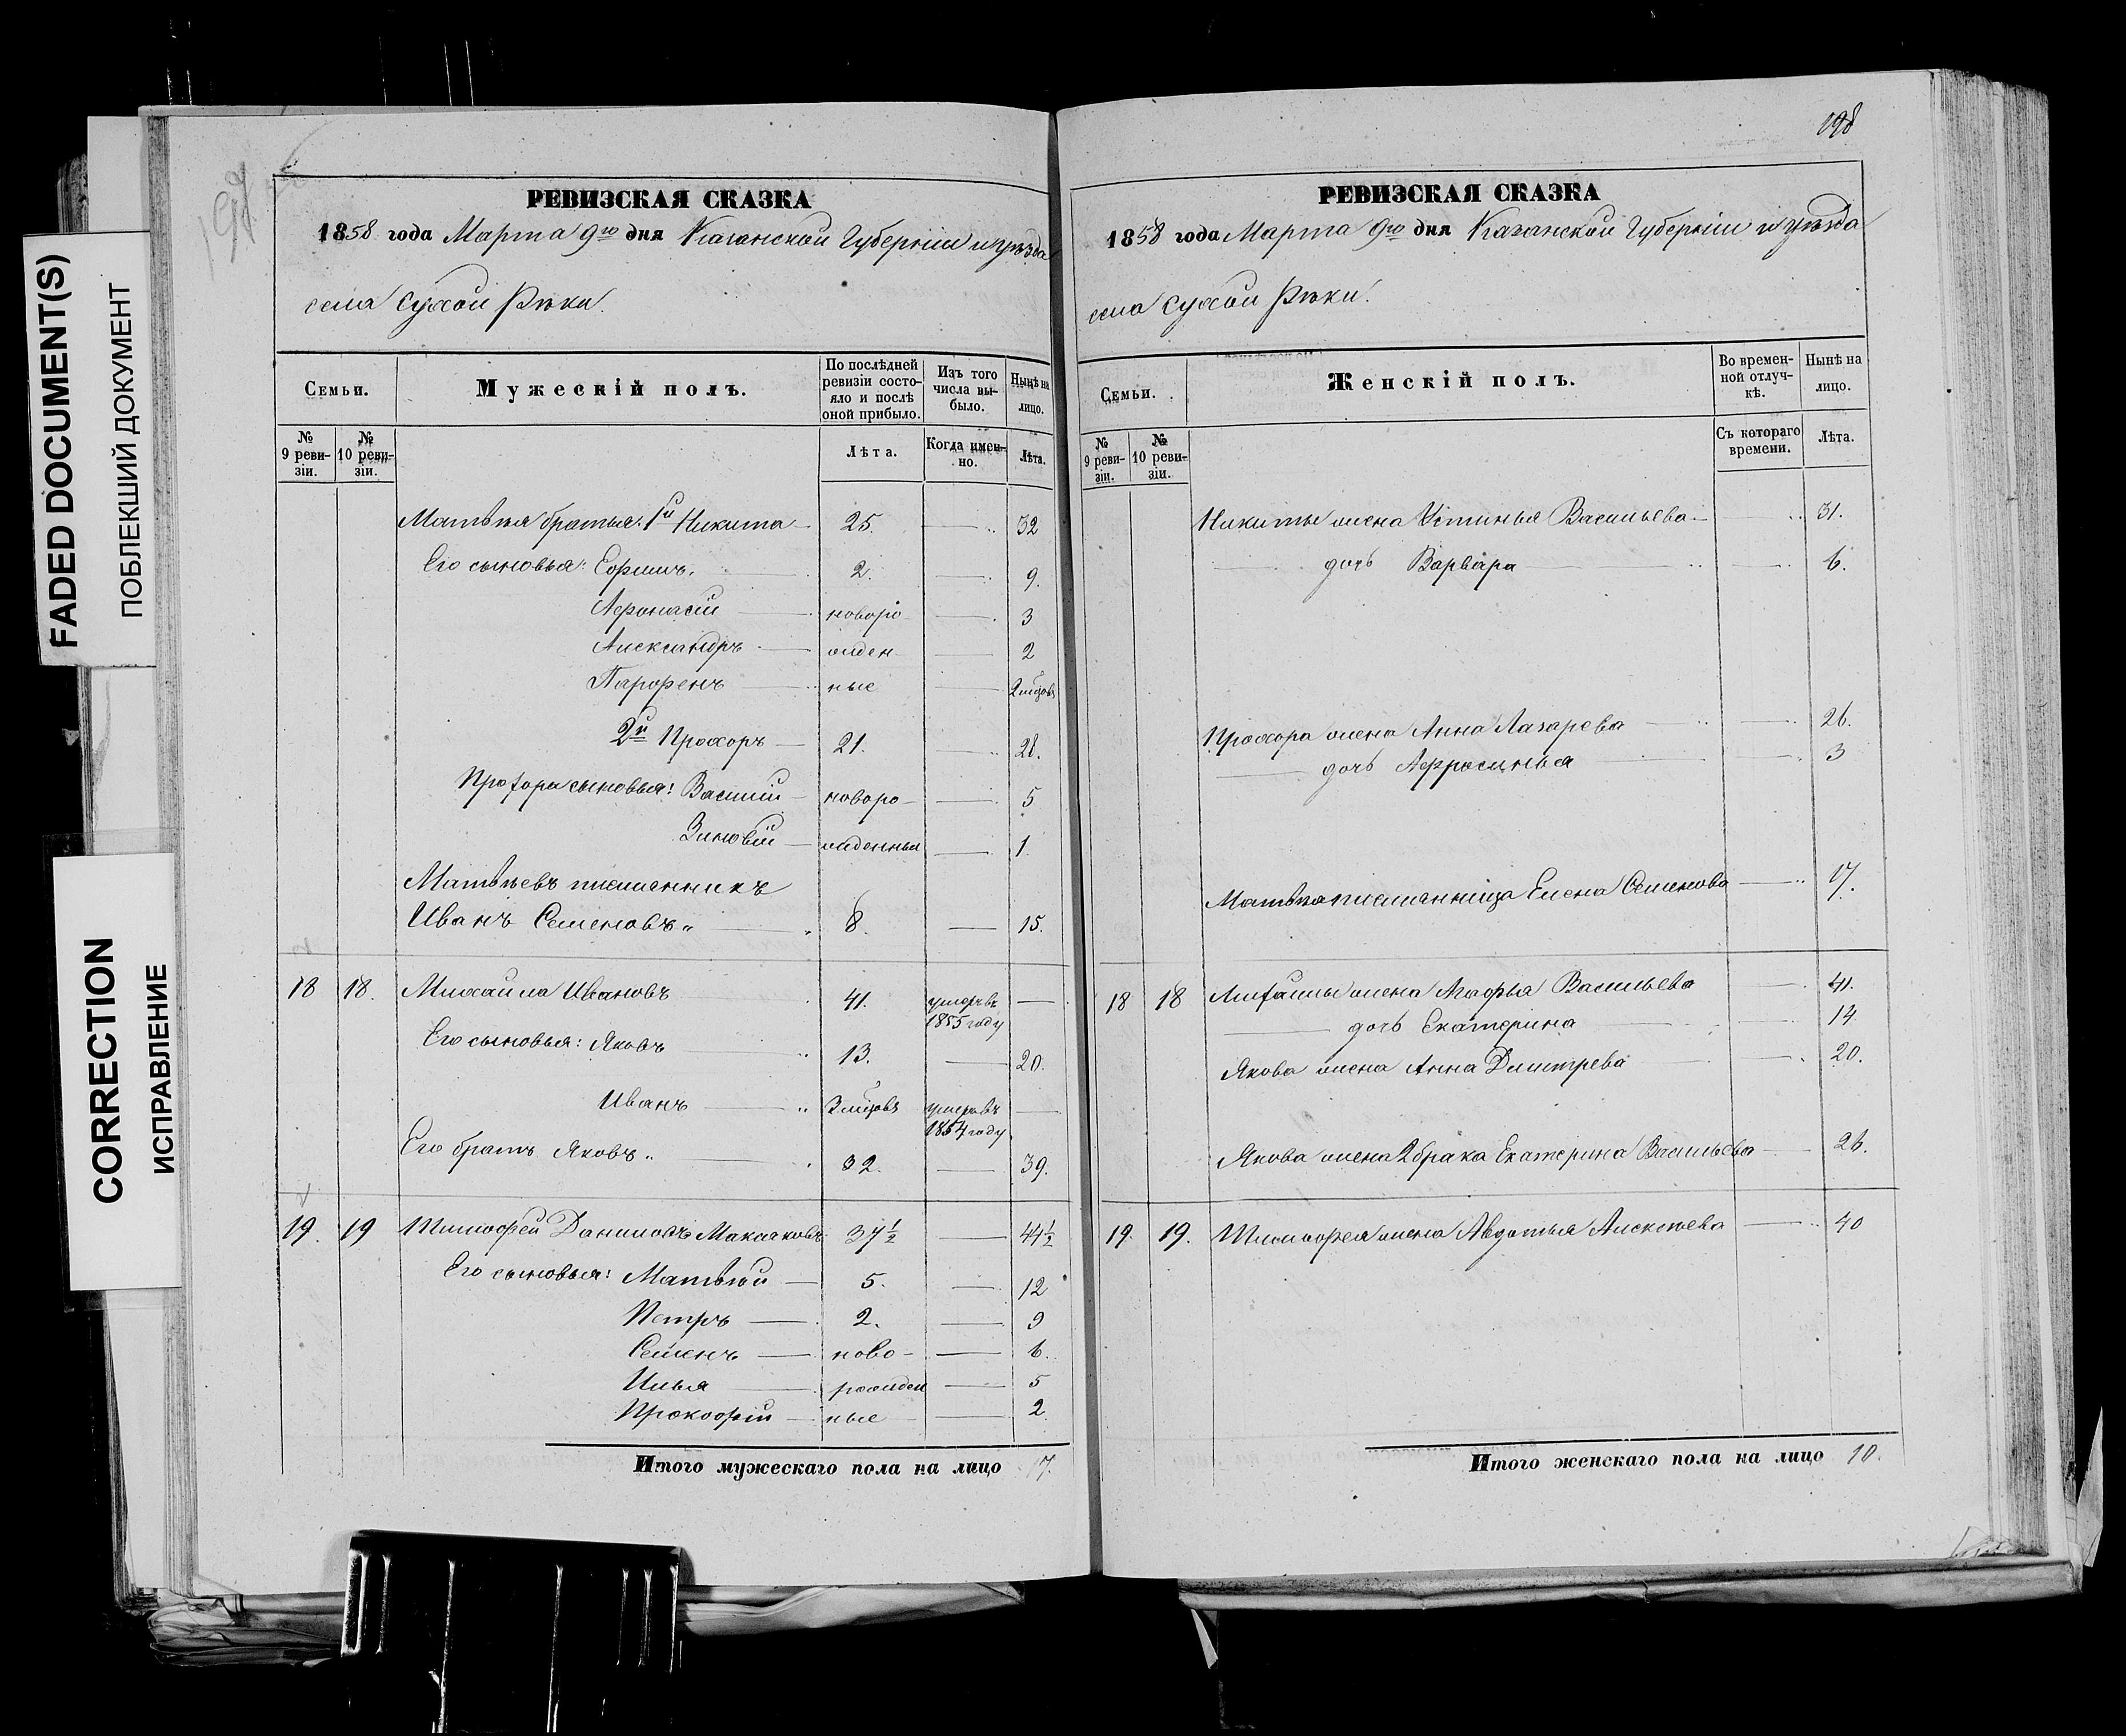 FADED DOCUMENT(S)
ПОБЛЕКШИЙ ДОКУМЕНТ
CORRECTION
ИСПРАВЛЕНИЕ
197
РЕВИЗСКАЯ СКАЗКА
1858 года Марта 9го дня Казанской Губерніи и уѣзда
села Сухой Рѣки.
Семьи.
Мужескій полъ.
По послѣдней ревизіи состояло и послѣ оной прибыло.
Изъ того числа выбыло.
Нынѣ на лицо.
№ 9 ревизіи.
№ 10 ревизіи.
Лѣта.
Когда именно.
Лѣта.
Матвѣя братья: 1й Никита 25. 32
Его сыновья: Ефимъ. 2. 9.
Афонасій новоро 3
Александръ жден 2
Парфенъ ные 2 мцовъ
2й Прохоръ 21. 28.
Прохора сыновья: Василій новоро 5
Зиновій жденныи 1.
Матвѣевъ племенникъ
Иванъ Семеновъ 8. 15.
18 18. Михайла Ивановъ 41. умеръ въ 1855 году
Его сыновья: Яковъ 13. 20.
Иванъ 3 мцовъ умеръ въ 1854 году
Его братъ Яковъ 32. 39.
19. 19 Тимофей Даниловъ Маклаковъ 37½ 44½
Его сыновья: Матвѣй 5. 12
Петръ 2. 9
Семенъ ново- 6.
Илья рожден 5
Прокофій ные 2
Итого мужескаго пола на лицо 17.
198
РЕВИЗСКАЯ СКАЗКА
1858 года Марта 9го дня Казанской Губерніи и уѣзда
села Сухой Рѣки.
Семьи.
Женскій полъ.
Во временной отлучкѣ.
Нынѣ на лицо.
№ 9 ревизіи.
№ 10 ревизіи.
Съ котораго времени.
Лѣта.
Никиты жена Устинья Васильева 31.
дочь Варвара 6.
Прохора жена Анна Лазарева 26.
дочь Афросинья 3
Матвѣя племянница Елена Семенова 17.
18 18 Михайлы жена Марфья Васильева 41.
дочь Екатерина 14
Якова жена Анна Дмитрева 20.
Якова жена 2 брака Екатерина Васильева 26.
19. 19. Тимофея жена Авдотья Алексѣева 40
Итого женскаго пола на лицо 10.